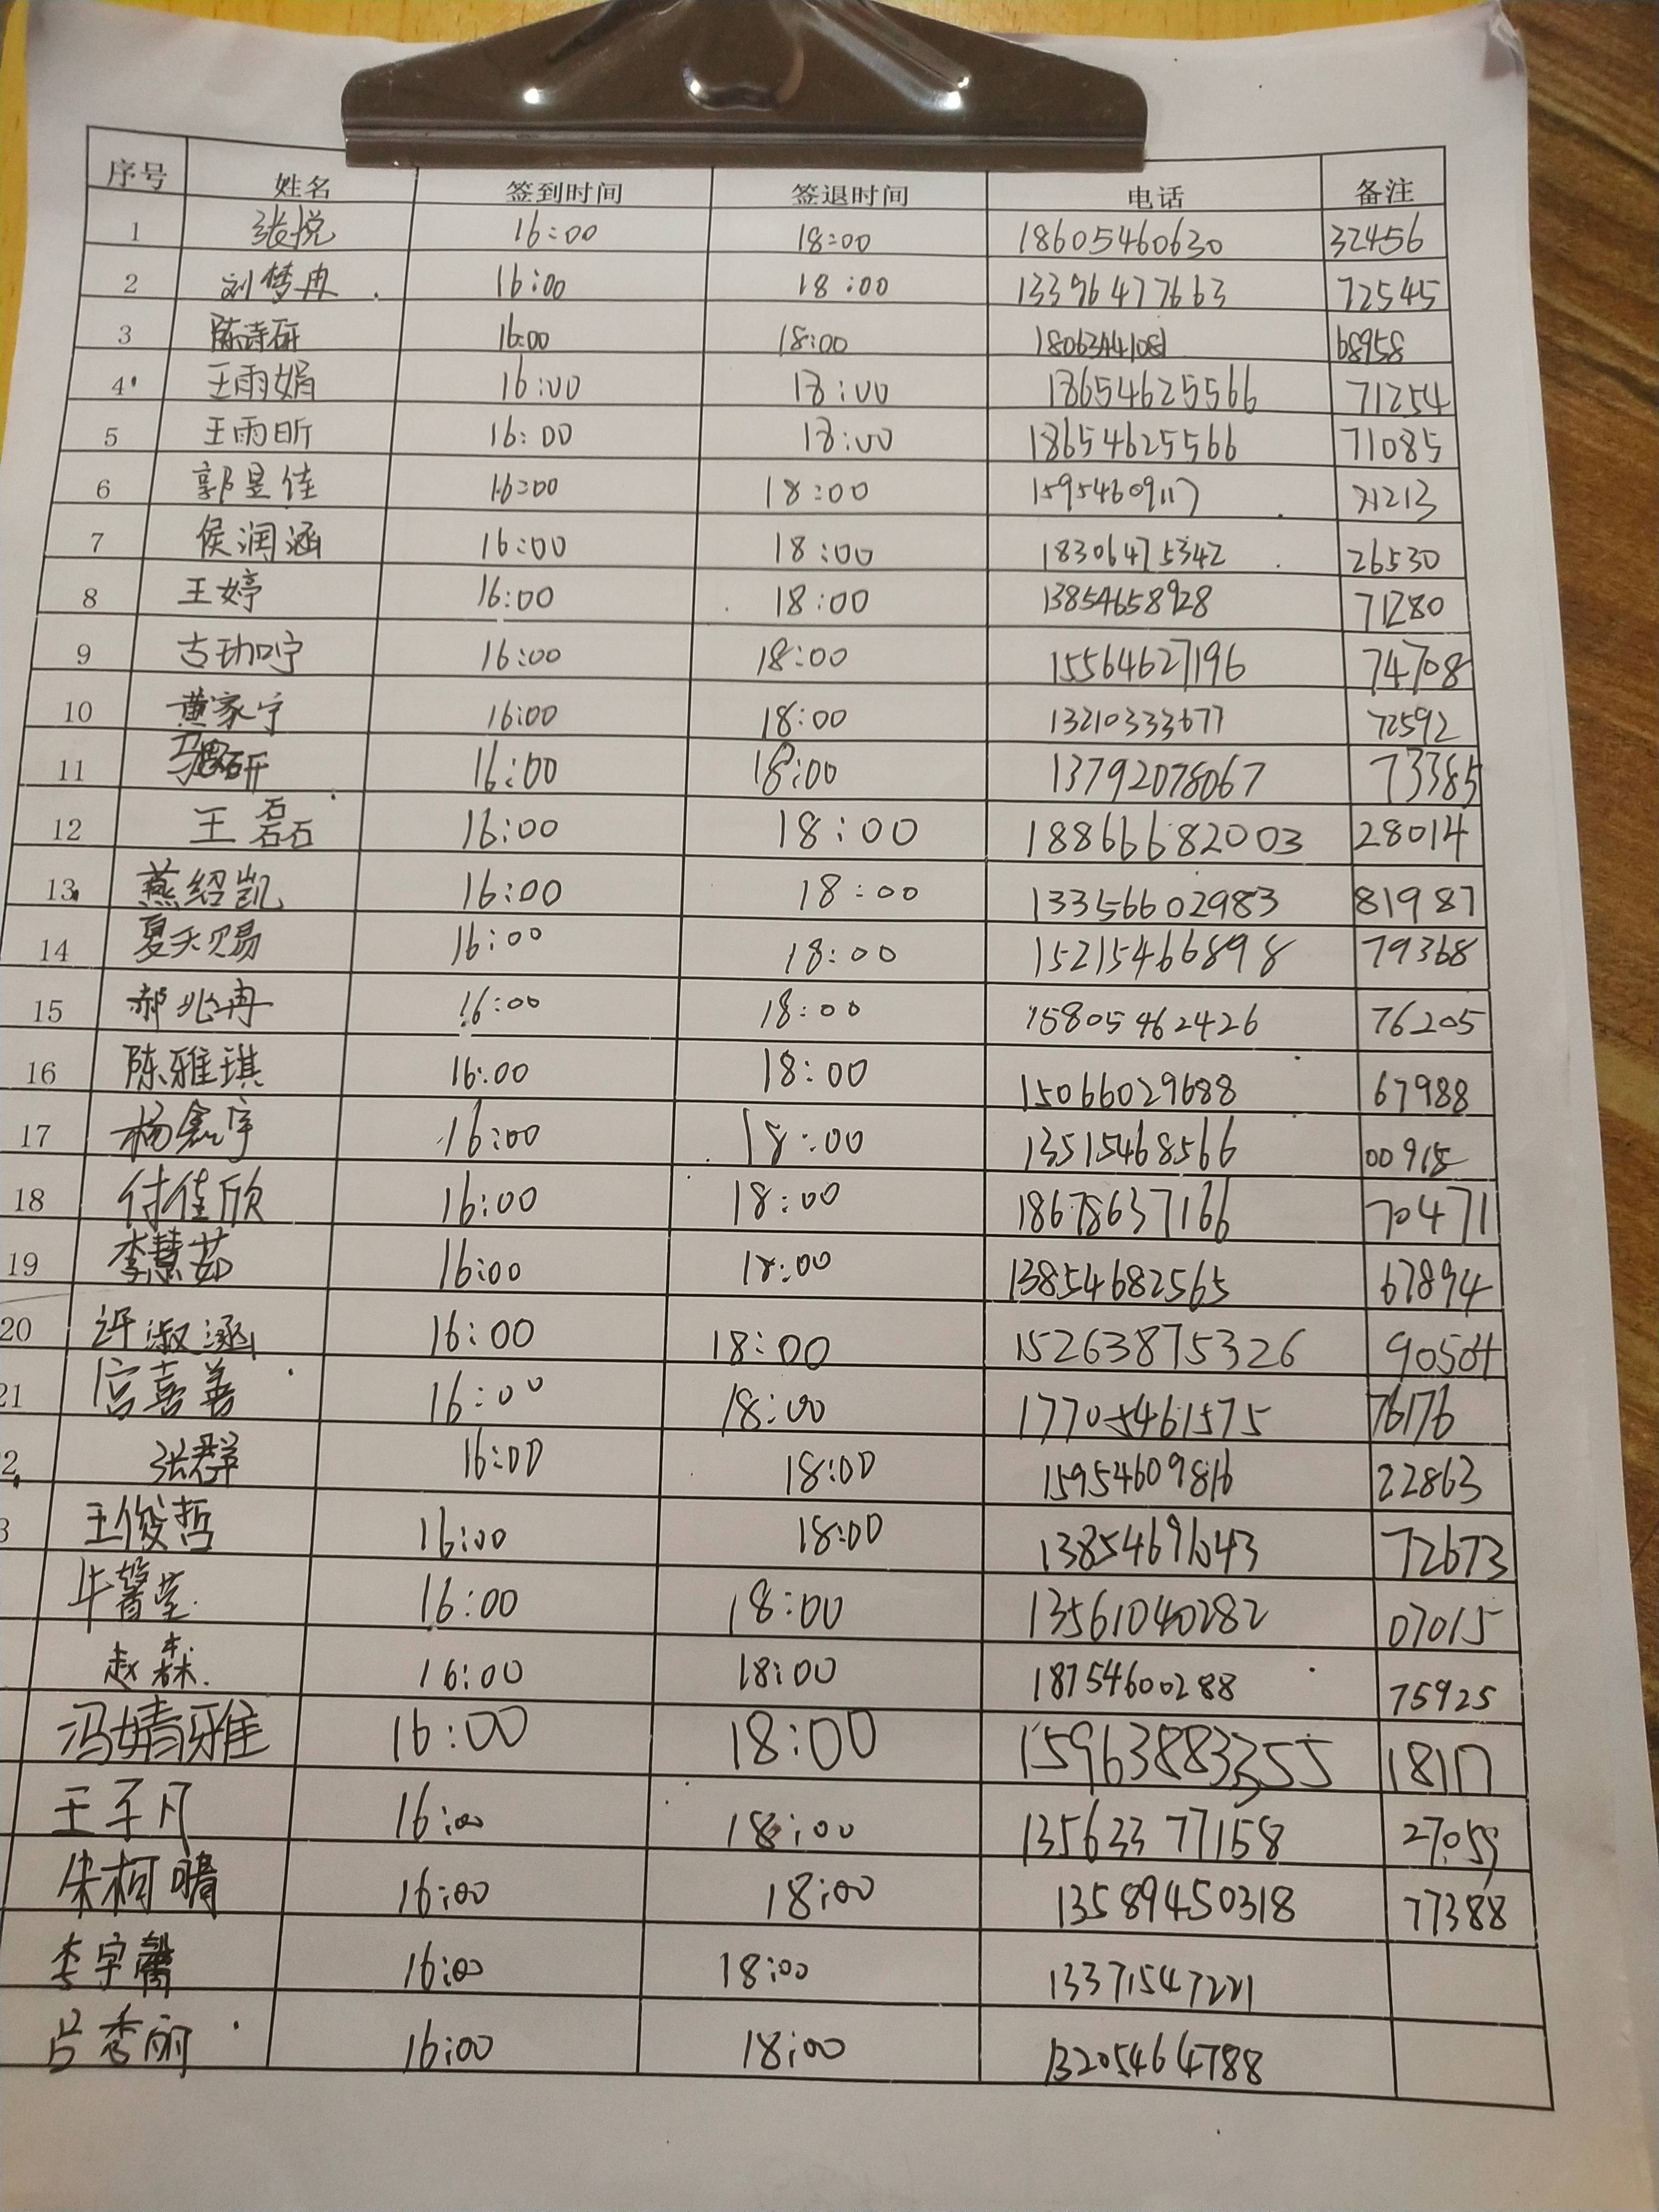 序号 姓名 签到时间 签退时间 电话 备注
1 张悦 16:00 18:00 18605460630 32456
2 刘梦冉 16:00 18:00 13396477663 72545
3 陈诗研 16:00 18:00 68958
4 王雨娟 16:00 18:00 18654625566 71254
5 王雨昕 16:00 18:00 18654625566 71085
6 郭昱佳 16:00 18:00 15954609117 71213
7 侯润涵 16:00 18:00 18306475342 26530
8 王婷 16:00 18:00 13854658928 71280
9 16:00 18:00 15564627196 74708
10 黄家宁 16:00 18:00 13210333677 72592
11 16:00 18:00 13792078067 73385
12 王磊 16:00 18:00 18866682003 28014
13 燕绍凯 16:00 18:00 13356602983 81987
14 夏天赐 16:00 18:00 15215466898 79368
15 郝兆冉 16:00 18:00 15805462426 76205
16 陈雅琪 16:00 18:00 15066029688 67988
17 杨鑫宇 16:00 18:00 13515468566 00915
18 付佳欣 16:00 18:00 18678637166 70471
19 李慧茹 16:00 18:00 13854682565 67894
20 许淑涵 16:00 18:00 15263875326 90504
21 宫嘉善 16:00 18:00 17705461575 76176
2 张群 16:00 18:00 15954609816 22863
3 王俊哲 16:00 18:00 72673
16:00 18:00 13561040282 07015
赵森 16:00 18:00 18754600288 75925
冯婧雅 16:00 18:00 15963883355
王子凡 16:00 18:00 13563377158 27059
朱柯晴 16:00 18:00 13589450318 77388
李宇馨 16:00 18:00 13371547221
吕秀丽 16:00 18:00 13205464788